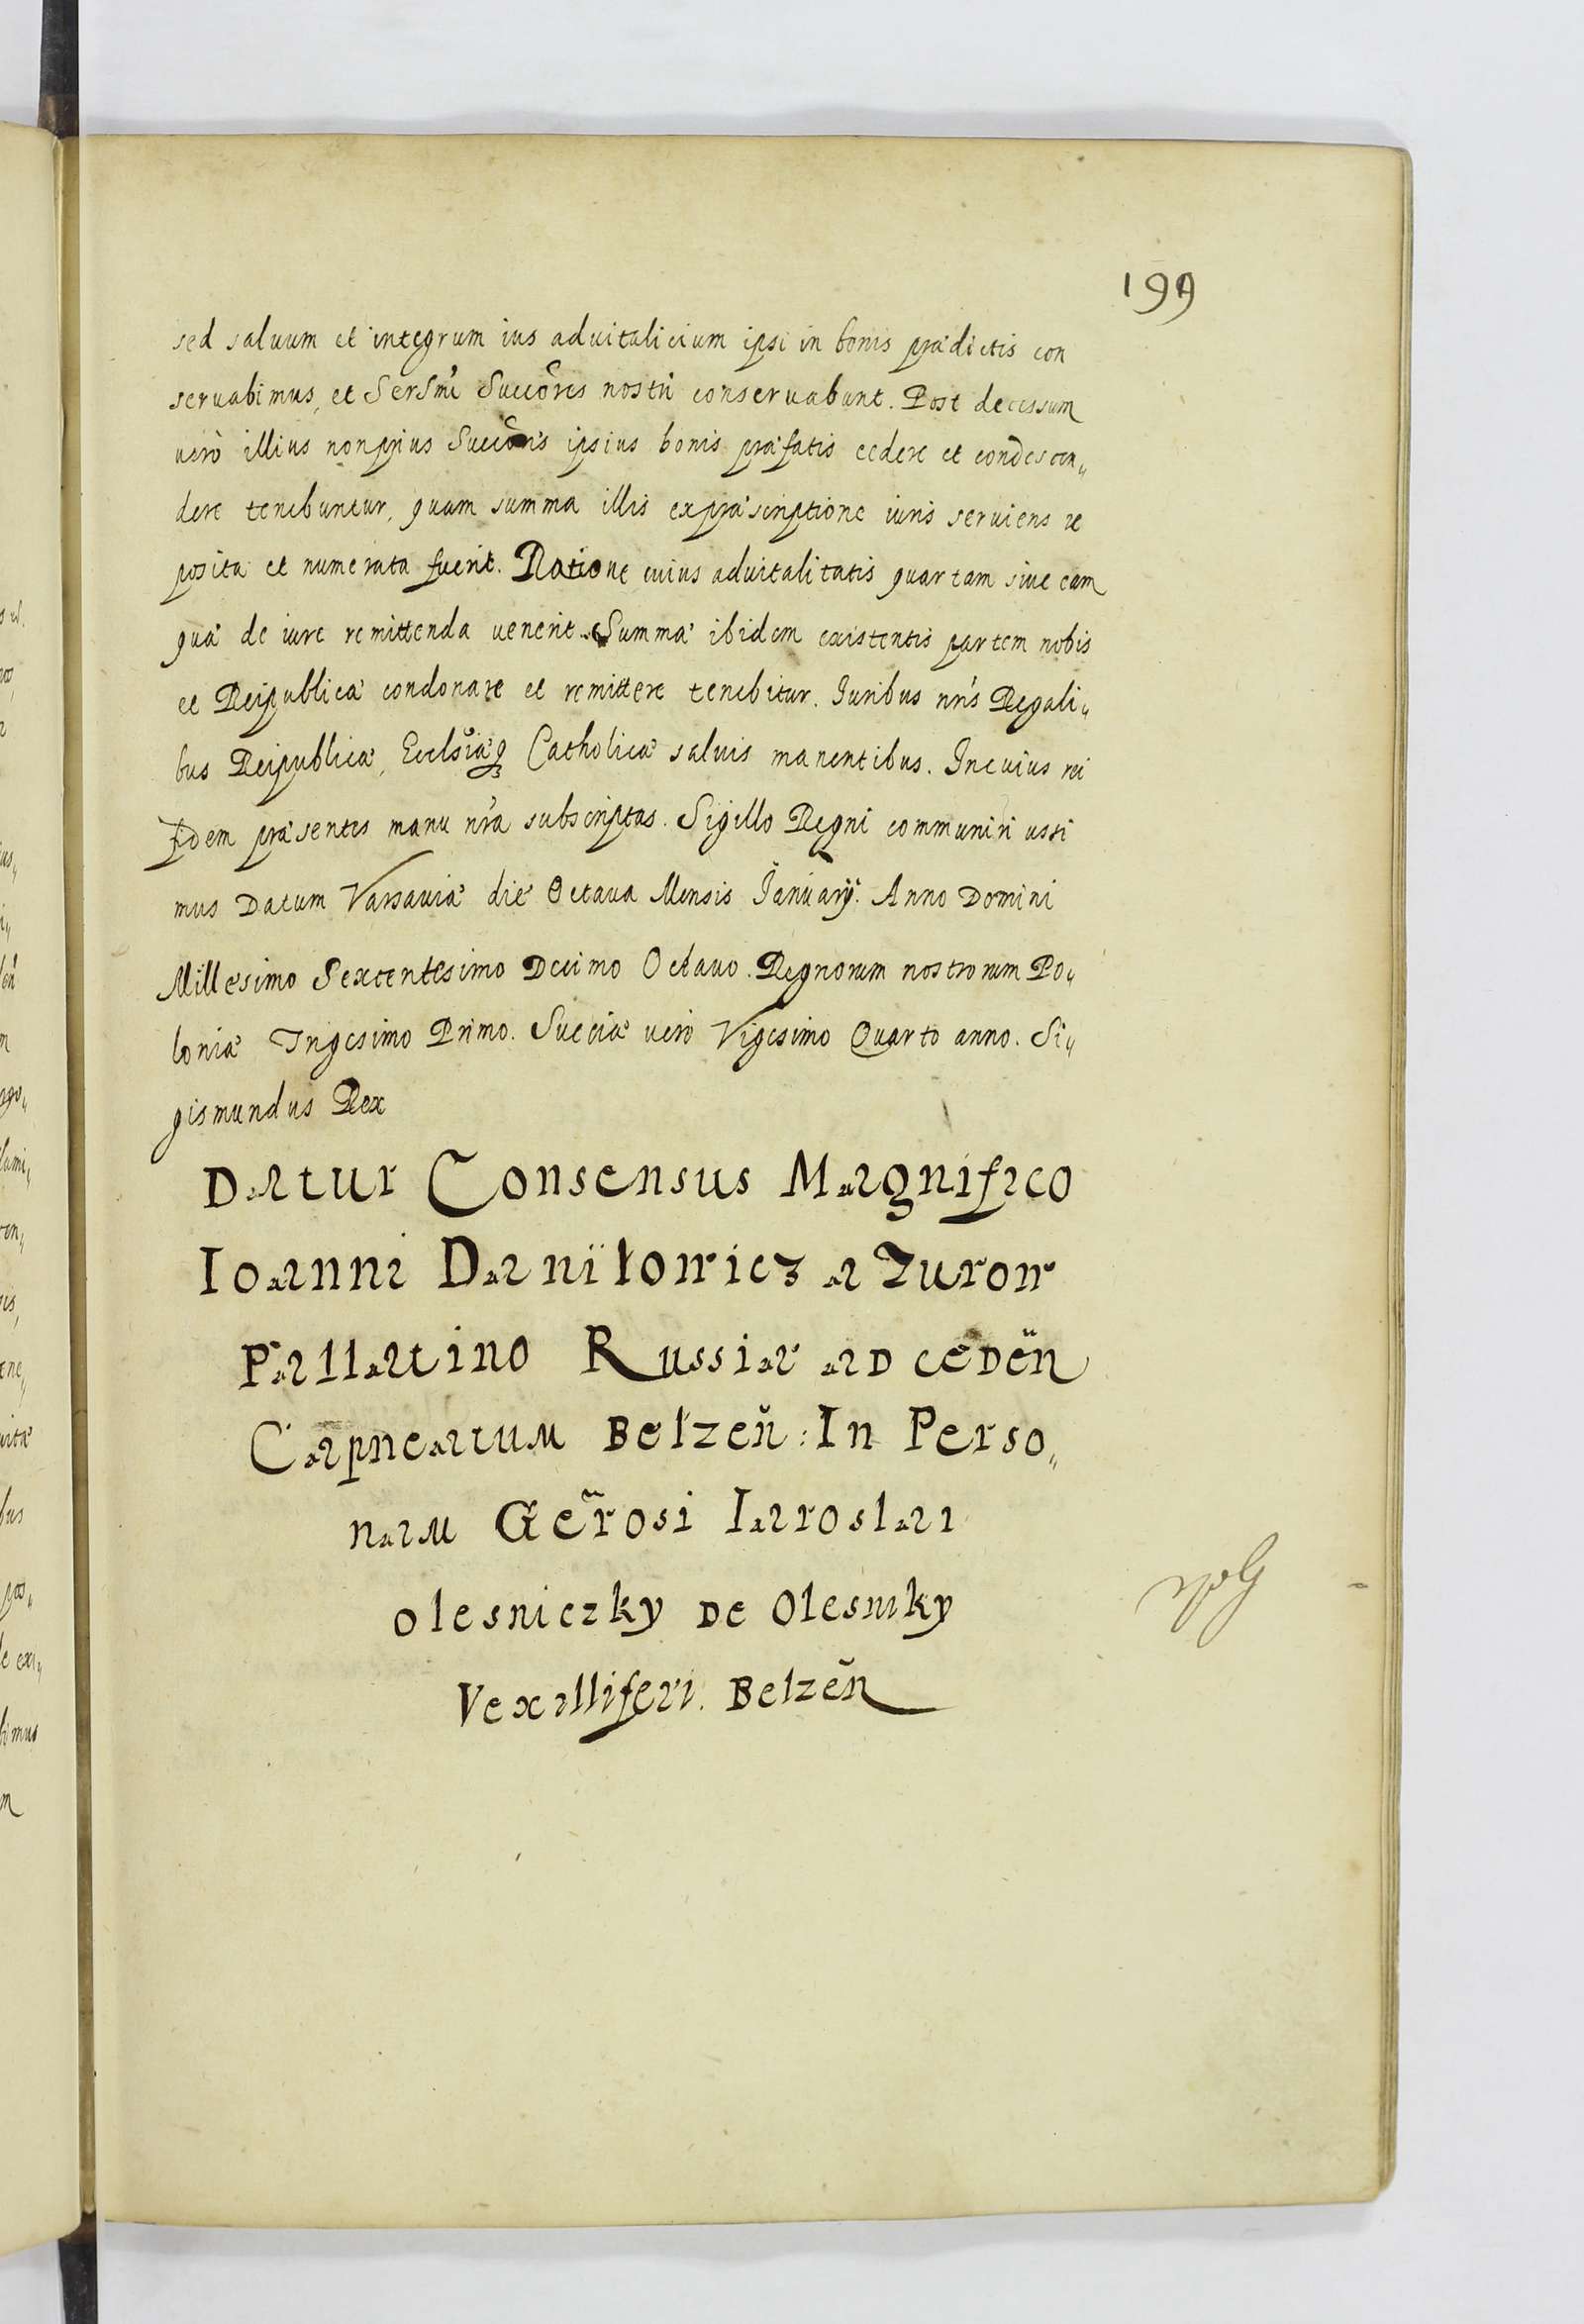 199
sed saluum et integrum ius aduitalicium ipsi in bonis prædictis con
seruabimus, et Sersmi Succõres nostri conseruabunt. Post decessum
uerò illius non prius Succõres ipsius bonis præfatis cedere et condescen„
dere tenebuntur, quam summa illis ex præscriptione iuris seruiens re
posita et numerata fuerit. Ratione cuius aduitalitatis quartam siue eam
quæ de iure remittenda uenerit Summæ ibidem existentis partem nobis
et Reipublicæ condonare et remittere tenebitur. Iuribus nris Regali„
bus Reipublicæ, Ecclsiæq Catholicæ saluis manentibus. In cuius rei
fidem præsentes manu nra subscriptas. Sigillo Regni communiri iussi
mus Datum Varsauiæ die Octaua Mensis Januarij. Anno Domini
Millesimo Sexcentesimo Decimo Octauo. Regnorum nostrorum Po„
loniæ Trigesimo Primo. Sueciæ uero Vigesimo Quarto anno. Si„
gismundus Rex
Datur Consensus Magnifico
Ioanni Daniłowicz a Zurow
Pallatino Russiæ ad cedeñ
Capneatum Bełzeñ: In Perso„
nam Gẽrosi Iaroslai
Olesniczky de Olesniky
Vexilliferi. Belzeñ